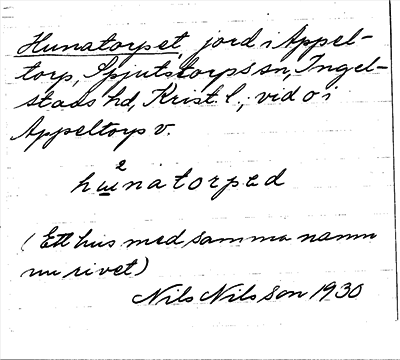 Hunatorpet, jord i Appel-
torp, Spjutstorps sn, Ingel-
stads hd, Krist. l., vid o i
Appeltorp v.
2
hunatorped
(Ett hus med samma namn
nu rivet)
Nils Nilsson 1930